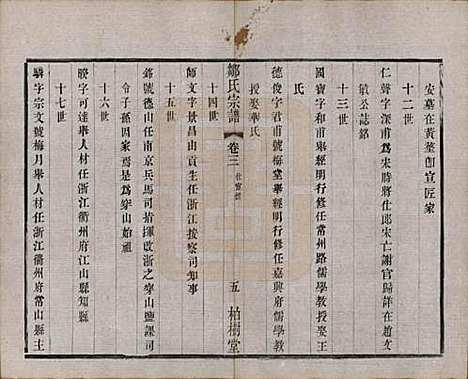 安墓在黃塋卽宣匠家
十二世
仁聲字深甫爲宋時將仕郎宋亡謝官歸詳在趙文
敏公誌銘
十三世
國寶字和甫舉經明行修任常州路儒學教授娶王
氏
德俊字君甫號梅堂舉經明行修任嘉興府儒學教
授娶華氏
鄒氏宗譜
卷三
五
柏樹堂
十四世
師文字景昌山貢生任浙江按察司知事
十五世
號德山任南京兵馬司指揮改浙之穿山鹽課司
令子孫因家焉是爲穿山始祖
十六世
字可達舉人材任浙江衢州府江山縣知縣
十七世
驎字宗文號梅月舉人材任浙江衢州府常山縣主